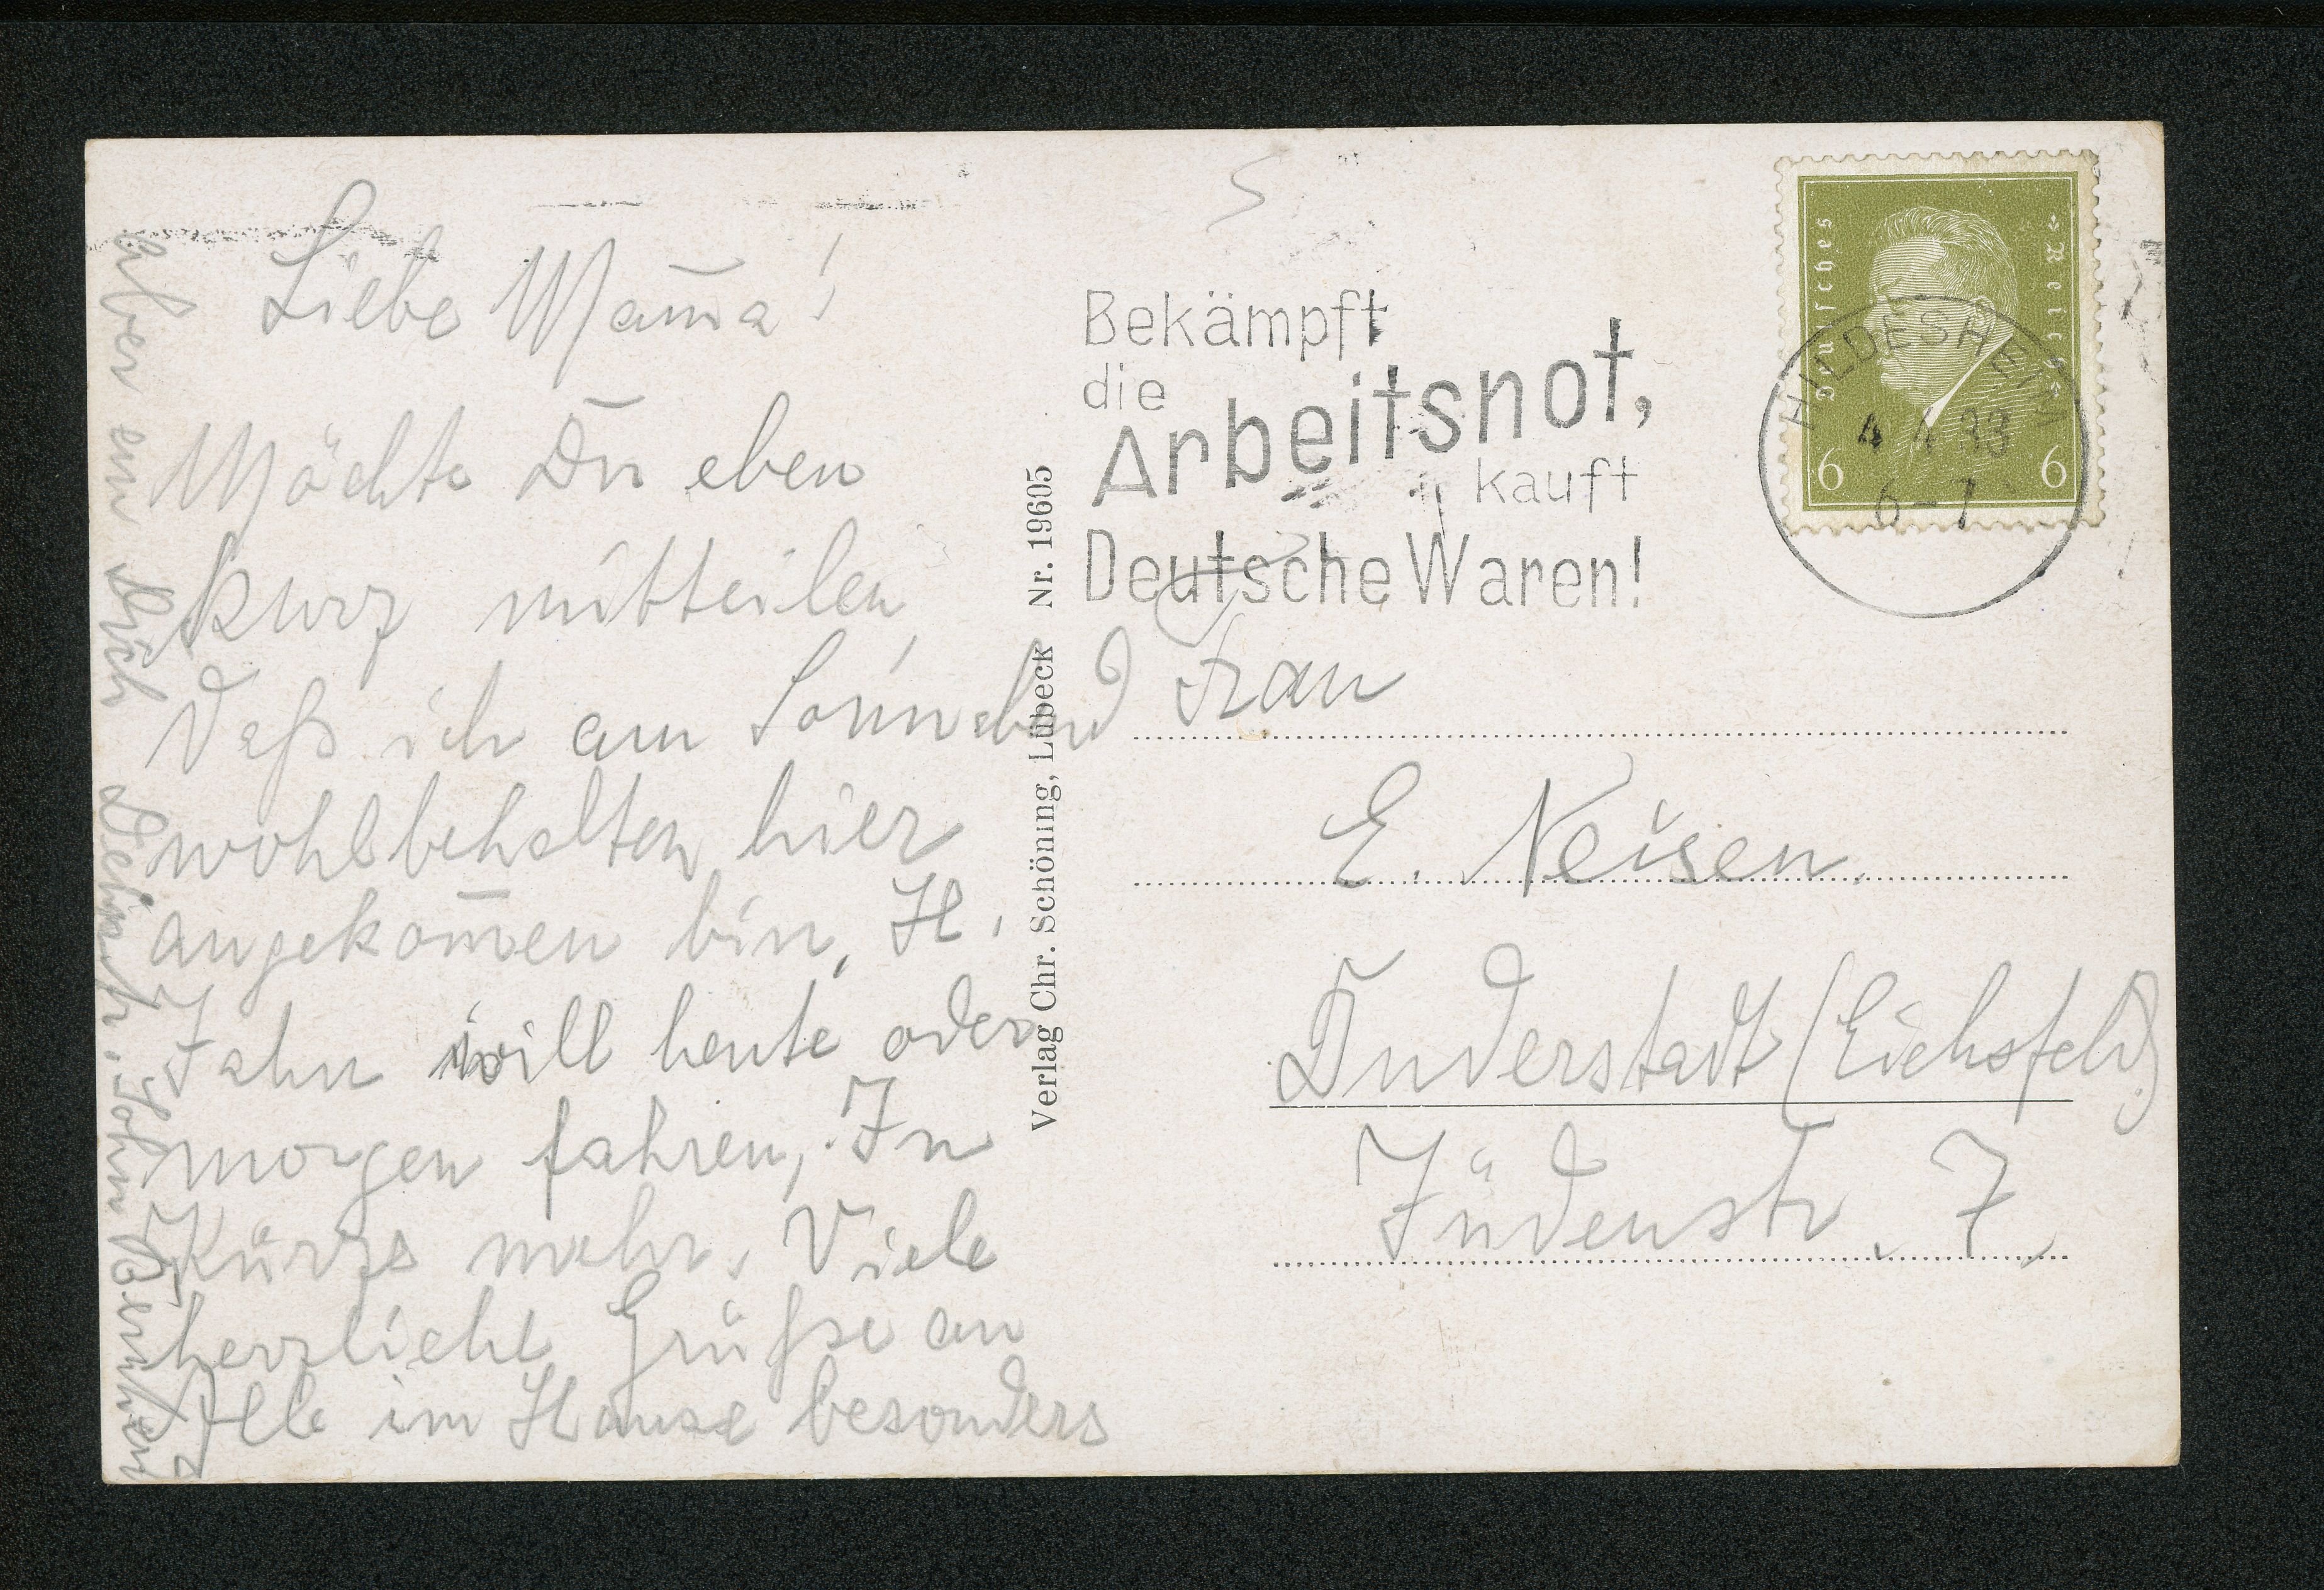 Liebe Mam̄a!
Möchte Du eben
kurz mitteilen,
daß ich am Sonnabend
wohlbehalten hier
angekom̄en bin, H.
Jahn will heute oder
morgen fahren, In
Kürze mehr. Viele
herzliche Grüße an
Alle im Hause besonders
aber an Dich Dein
Sohn Bernhard
Verlag Chr. Schöning, Lübeck Nr. 19605
Bekämpft
die
Arbeitsnot,
kauft
Deutsche Waren!
Deutsches Reich
6 6
HILDESHEIM
4 4 33
6-7
Frau
E. Neisen.
Duderstadt (Eichsfeld)
Jüdenstr. 7,